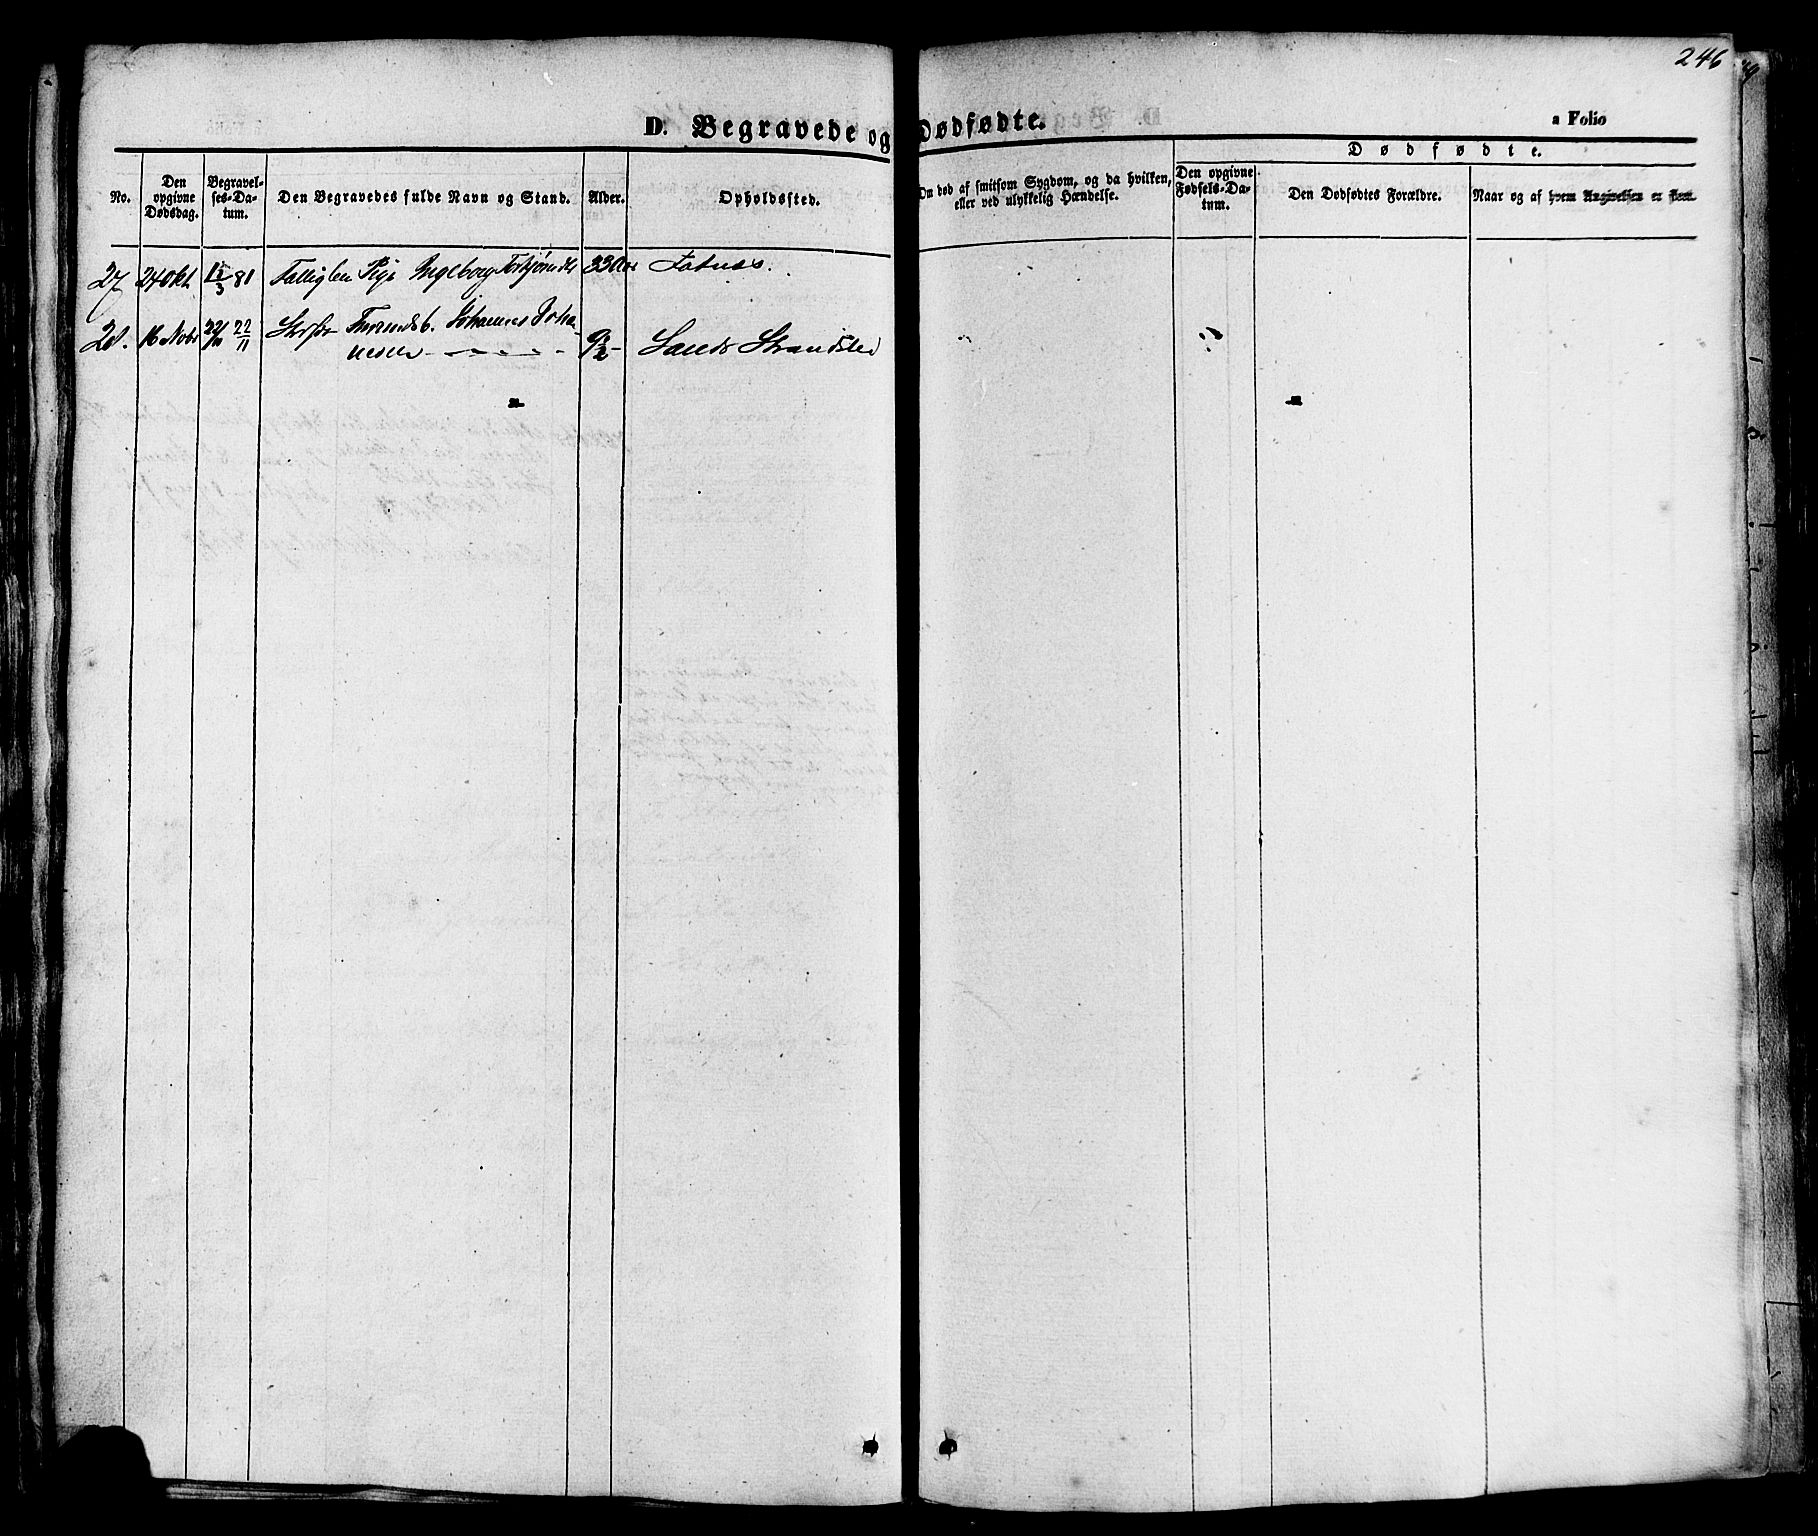 246
D. Begravede og Dødfødte.
a Folio
No.
Den opgivne Dødsdag.
Begravelses-Datum.
Den Begravedes fulde Navn og Stand.
Alder.
Opholdssted.
Om død af smitsom Sygdom, og da hvilken, eller ved ulykkelig Hændelse.
Dødfødte.
Den opgivne Fødsels-Datum.
Den Dødfødtes Forældre.
Naar og af hvem Angivelsen er
27 24 Okt 81 Pige Ingeborg 33 Aar
28. 16 Novbr 22/11 Johannes Joha-
nesen Sands Strandsted